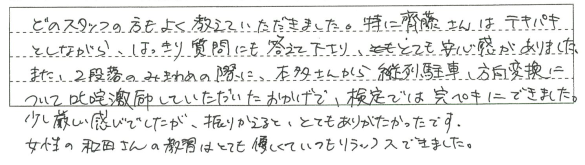 どのスタッフの方もよく教えていただきました。特に齊藤さんはテキパキ
としながら、はっきり質問にも答えて下さり、とてもとても安心感がありました
また、2段落のみきわめの際に、本多さんから縦列駐車、方向変換に
ついて叱咤激励していただいたおかげで、検定では完ペキにできました。
少し厳しい感じでしたが、振りかえると、とてもありがたかったです。
女性の和田さんの教習はとても優しくていつもリラックスできました。